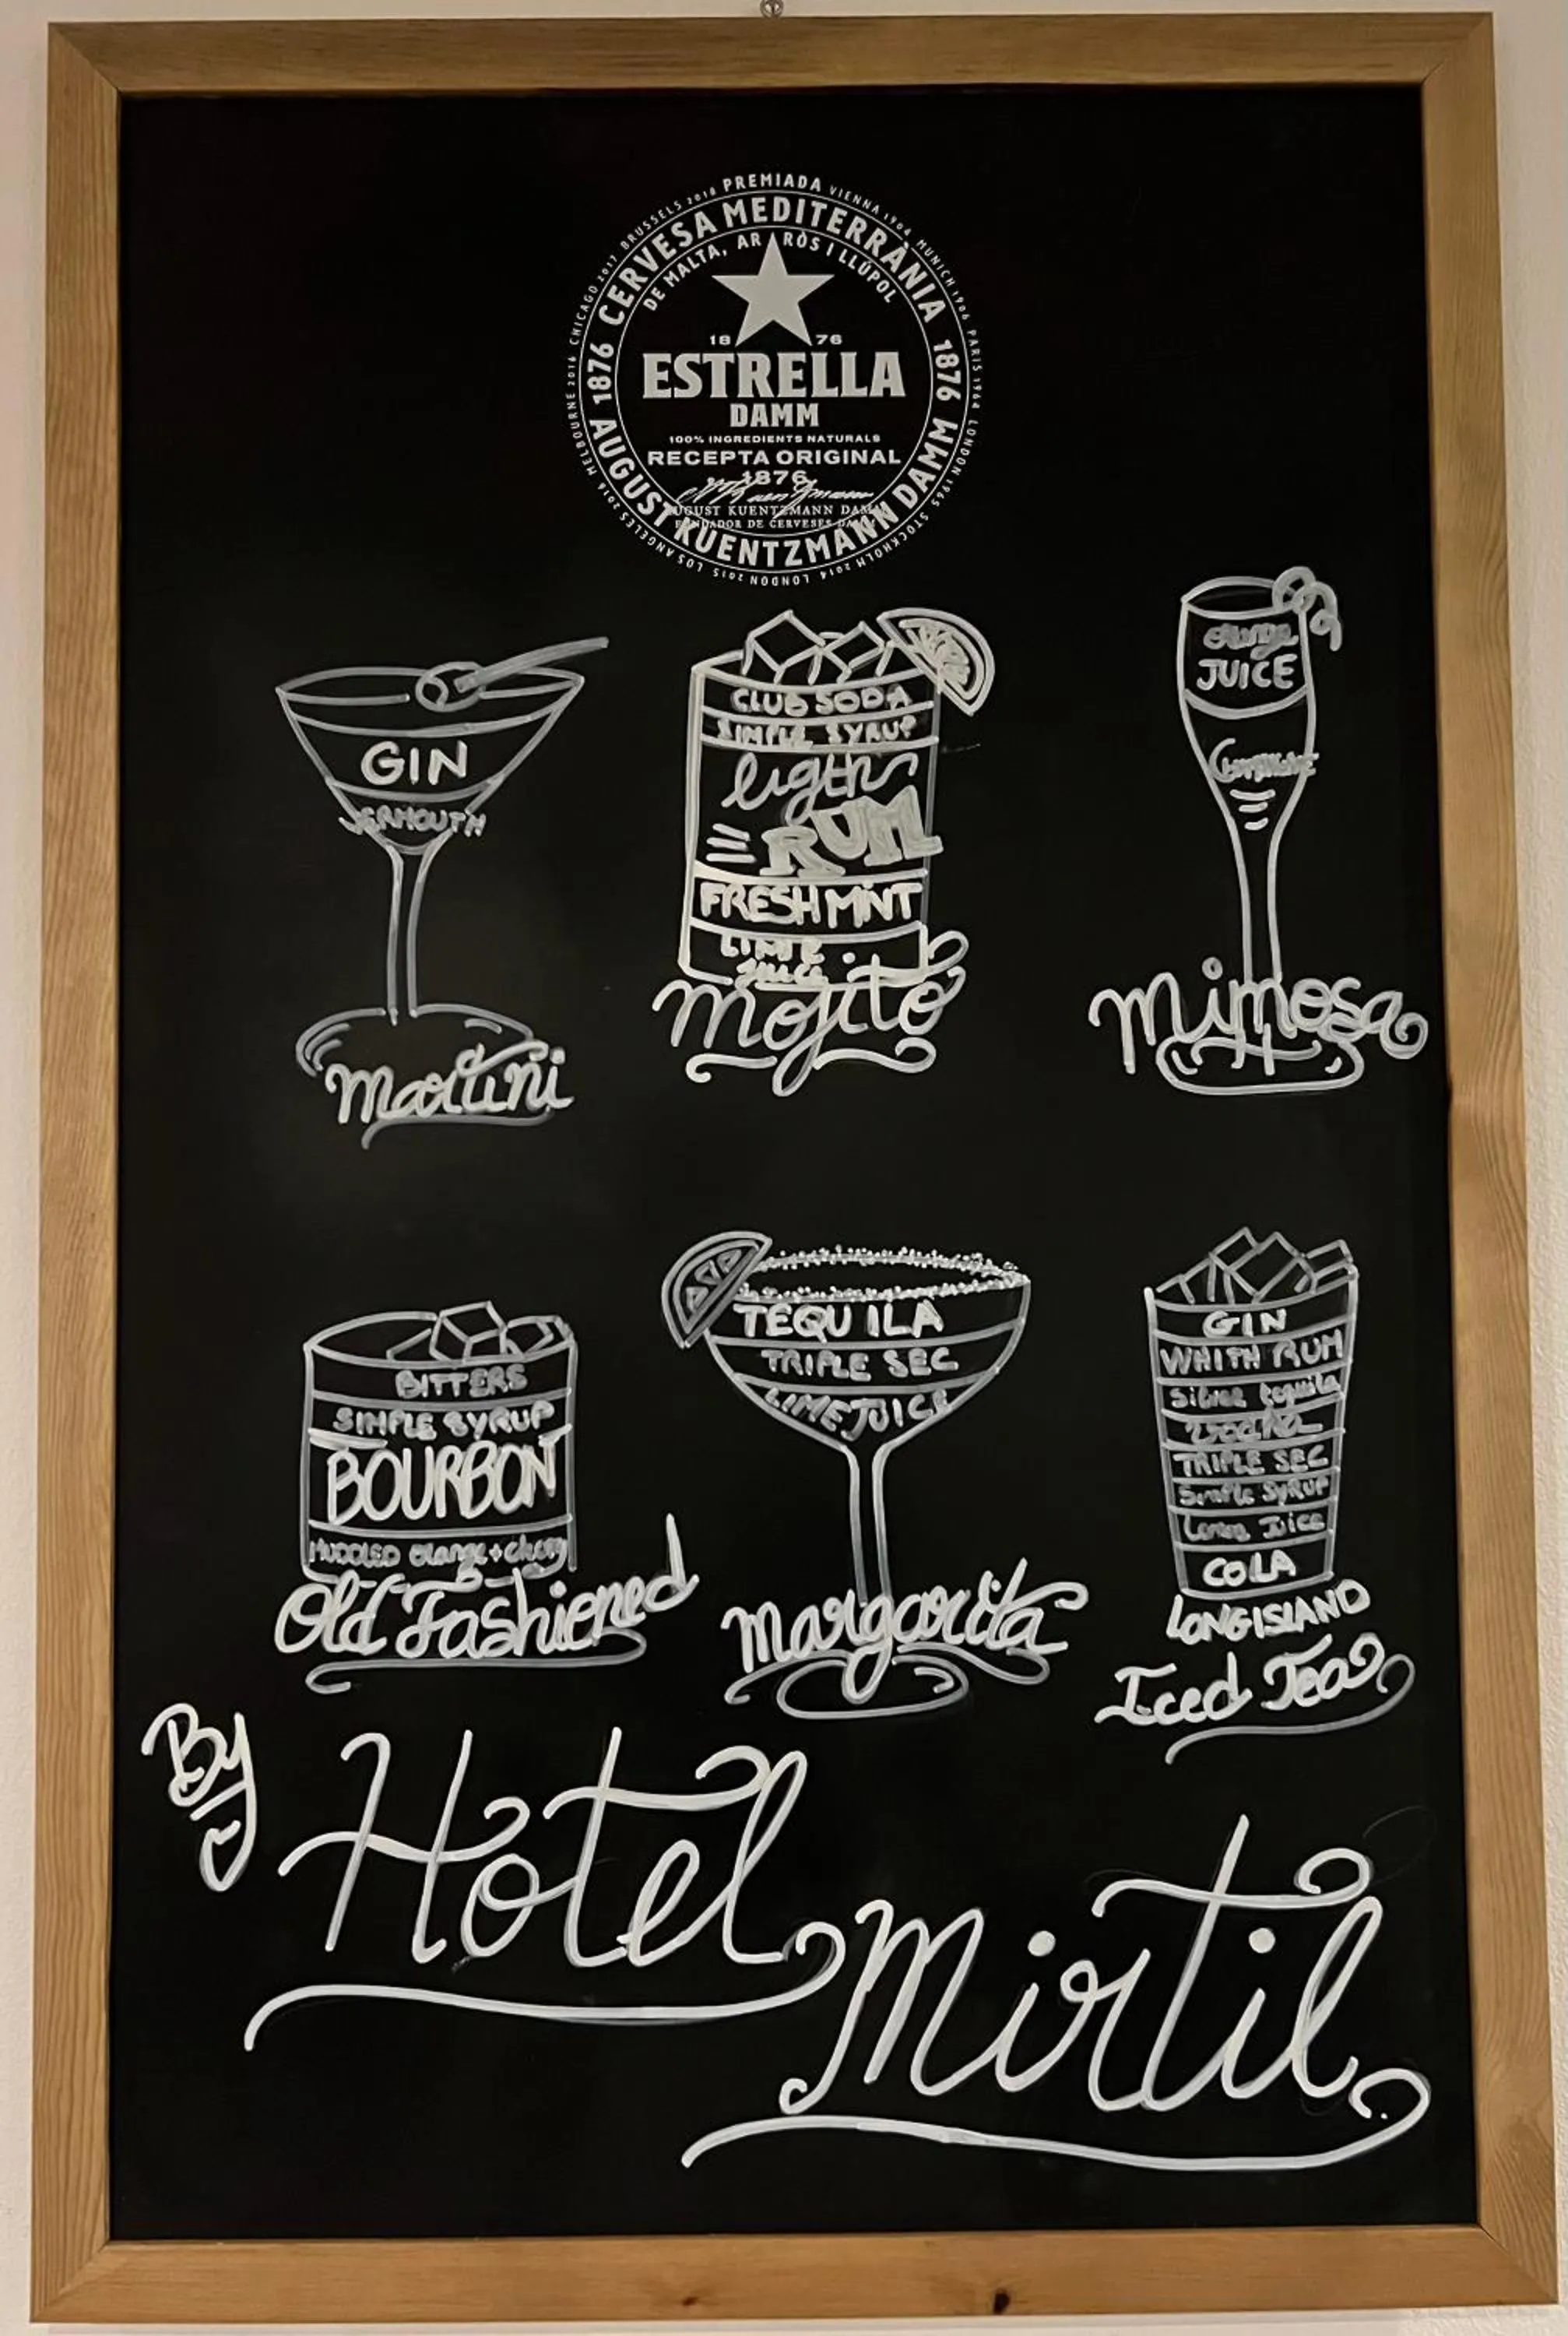 PREMIADA VIENNA 1904 MUNICH 1906 PARIS 1964 LONDON 1965 STOCKHOLM 2014 LONDON 2015 LOS ANGELES 2016 MELBOURNE 2016 CHICAGO 2017 BRUSSELS 2018
CERVESA MEDITERRÀNIA
DE MALTA, ARRÒS I LLÚPOL
1876
1876
18 76
ESTRELLA
DAMM
100% INGREDIENTS NATURALS
RECEPTA ORIGINAL
1876
AUGUST KUENTZMANN DAMM
FUNDADOR DE CERVESES DAMM
AUGUST KUENTZMANN DAMM
GIN
VERMOUTH
Martini
CLUB SODA
SIMPLE SYRUP
ligth
RUM
FRESH MINT
LIME
juice
Mojito
orange
JUICE
Mimosa
BITTERS
SIMPLE SYRUP
BOURBON
MUDDLED orange + cherry
Old Fashioned
TEQUILA
TRIPLE SEC
LIME JUICE
Margarita
GIN
WHITH RUM
Silver tequila
Vodka
TRIPLE SEC
Simple SYRUP
Lemon Juice
COLA
LONG ISLAND
Iced Tea
By
Hotel
Mirtil